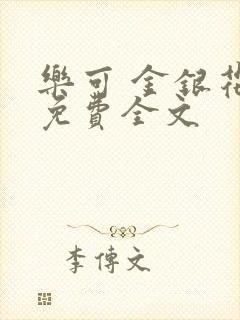 樂可 金銀花
免費全文
李傳文